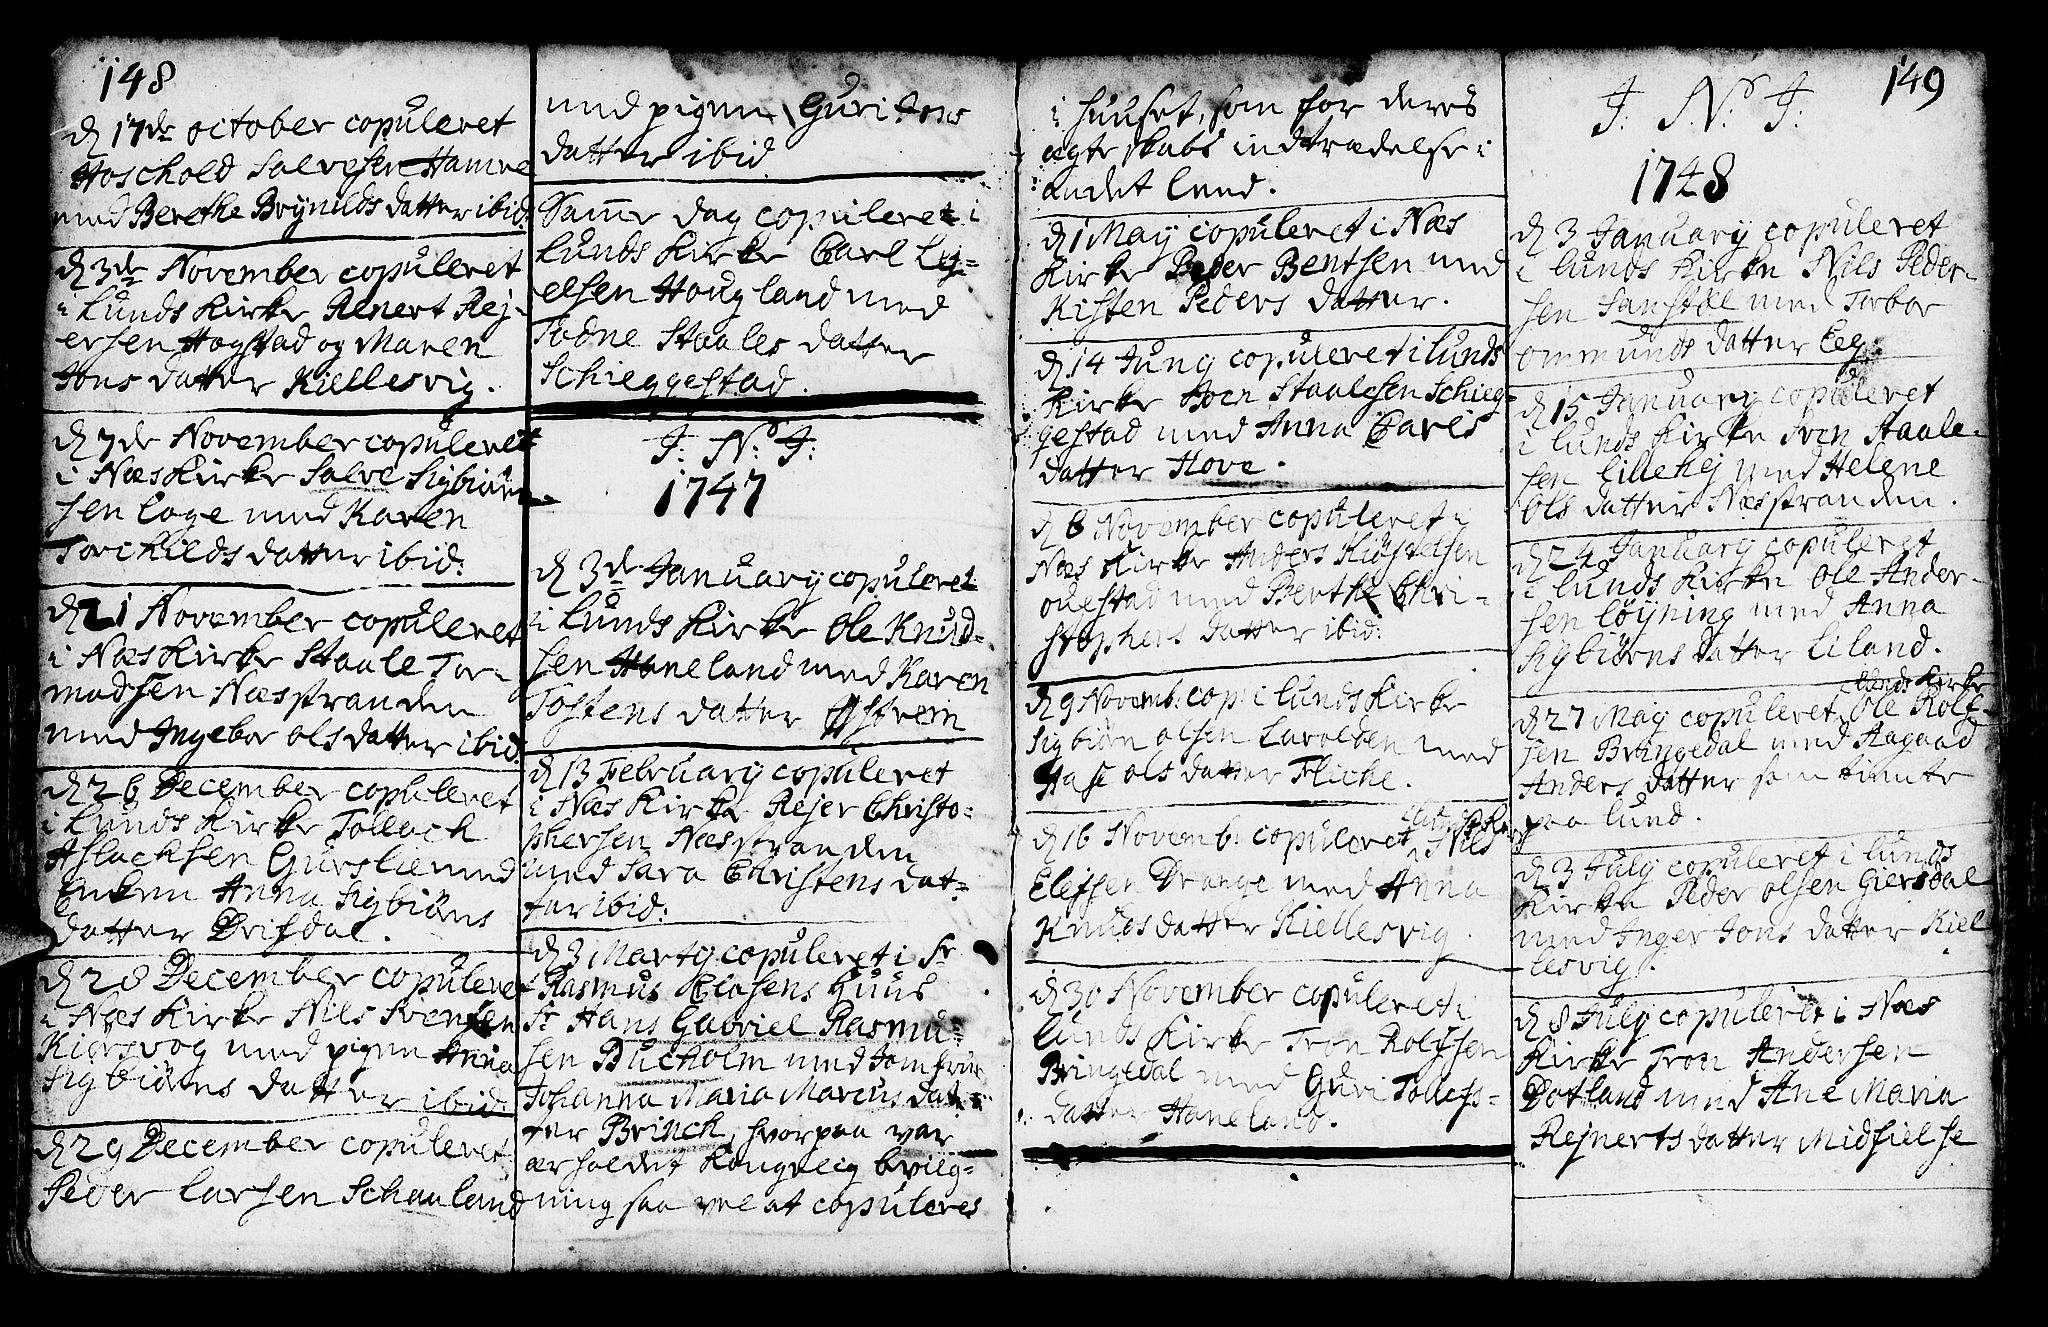 148
d 17de october copuleret
Hoschold Salvesen Hamre
med Berethe Brynilds datter ibid:
d 3de November copuleret
i Lunds Kirke Renert Rej-
ersen Hogstad og Maren
Jons datter Kiellesvig.
d 7de November copuleret
i Næs Kirke Salve Sigbiørn
sen Loge med Karen
Torchilds datter ibid:
d 21 November copuleret
i Næs Kirke Staale Tor-
modsen Næsstranden
med Ingebor ols datter ibid.
d 26 December copuleret
i Lunds Kirke Tollach
Aslachsen Gurslie med
Enken Anna Sigbiørns
datter Drifdal.
d 28 December copuleret
i Næs Kirke Nils Svensen
Kiørsvog med pigen Anna
Sigbiørns datter ibid:
d 29 December copuleret
Peder Larsen Schauland
med pigen Guri Jons
datter ibid
Samme dag copuleret i
Lunds Kirke Carl Lej-
elsen Hougland med
Todne Staales datter
Schieggestad.
J: N: J:
1747
d 3de January copuleret
i Lunds Kirke Ole Knud-
sen Haneland med Karen
Tostens datter Østrem
d 13 February copuleret
i Næs Kirke Rejer Christo-
phersen Næsstranden
med Sara Christens dat-
ter ibid:
d 3 Marty copuleret i Sr
Rasmus Clasens Huus
Sr Hans Gabriel Rasmu-
sen Bucholm med Jomfrue
Johanna Maria Marcus dat-
ter Brinch, hvorpaa var
ærholdet kongelig bevilg-
ning saa vel at copuleres
i huuset, som for deres
ægteskabs indtrædelse i
andet leed.
d 1 May copuleret i Næs
Kirke Peder Bentsen med
Kisten Peders datter.
d 14 Juny copuleret i Lunds
Kirke Joen Staalesen Schieg-
gestad med Anna Carls
datter Hove.
d 6 November copuleret i
Næs Kirke Anders Kiøstelsen
ouestad med Berthe Chri-
stophers datter ibid:
d 9 Novemb: cop: i Lunds Kirke
Sigbiørn olsen Larolden med
Aase ols datter Fliche.
d 16 Novemb: copuleret i Lunds Kirke Nils
Elefsen Drange med Anna
Knuds datter Kiellesvig.
d 30 November copuleret i
Lunds Kirke Tron Rolfsen
Bringedal med Guri Tollefs-
datter Haneland.
149
J: N: J:
1748
d 3 January copuleret
i Lunds Kirke Nils Peder-
sen Sanstøl med Torbor
ommunds datter Eeg.
d 15 January copuleret
i Lunds Kirke Sven Staale-
sen Lillehej med Helene
Ols datter Næsstranden.
d 24 January copuleret
i Lunds Kirke Ole Ander-
sen Løyning med Anna
Sigbiørns datter Liland.
d 27 May copuleret Lunds Kirke Ole Rolf-
sen Bringedal med Aagaad
Anders datter som tiente
paa Lund.
d 3 July copuleret i Lunds
Kirke Peder olsen Giersdal
med Inger Jons datter Kiel
lesvig.
d 8 July copuleret i Næs
Kirke Tron Andersen
Dotland med Ane Maria
Rejnerts datter Midhielse